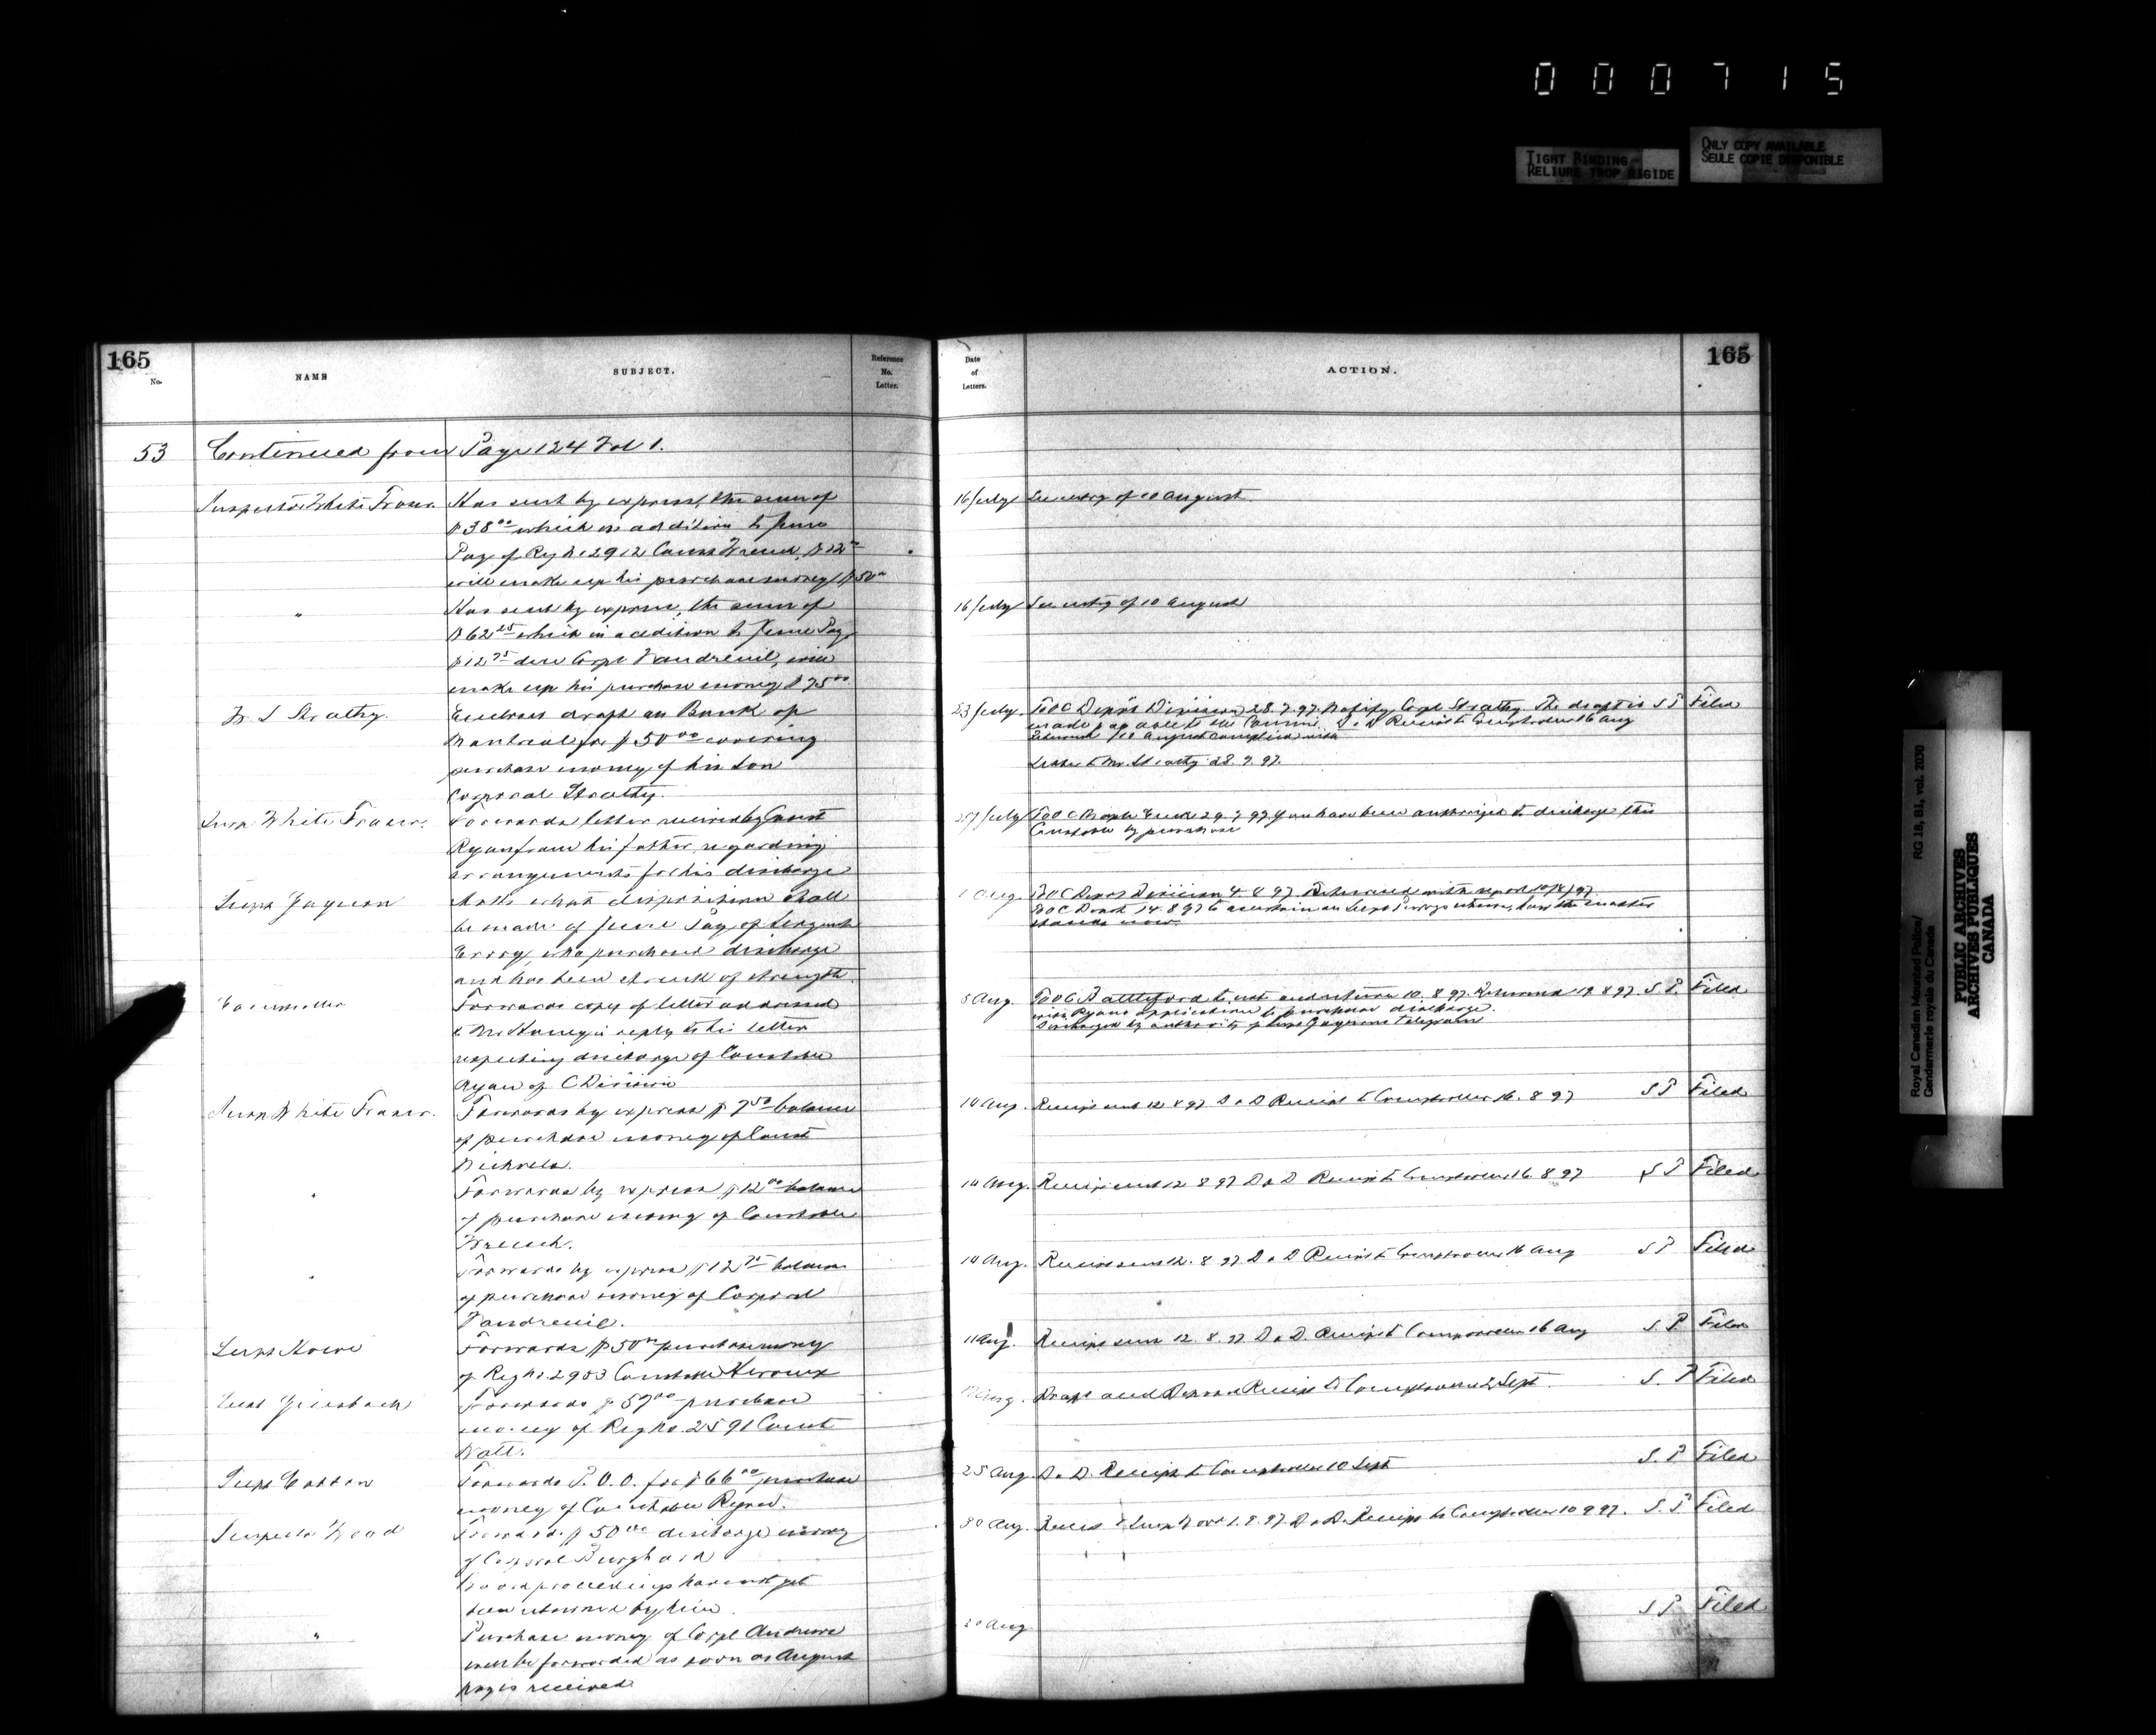 000715
TIGHT BINDING
RELIURE TROP RIGIDE
ONLY COPY AVAILABLE
SEULE COPIE DISPONIBLE
165
No.
NAME
SUBJECT.
Reference
No.
Letter.
53
Continued from Page 124 Vol 1.
Inspector White Fraser
Has sent by express, the sum of
$38.00 which in addition to June
Pay of Reg No 2912 Const French, $12.00
will make up his purchase money $50.00
"
Has sent by express, the sum of
$62.25 which in addition to June Pay
$12.75 due Corpl Vaudreuil, will
make up his purchase money $75.00
Strathy.
Encloses draft on Bank of
Montreal for $50.00 covering
purchase money of his son
Corporal Strathy.
Insp White Fraser.
Forwards letter received by Const
Ryan from his father, regarding
arrangements for his discharge
Insp
Asks what disposition shall
be made of June Pay of Sergeant
who purchased discharge
and has been struck of strength.
Comptroller
Forwards copy of letter addressed
to Mr in reply to his letter
respecting discharge of Constable
Ryan of C Division
Insp White Fraser.
Forwards by express $7.50 balance
of purchase money of Const
"
Forwards by express $12.00 balance
of purchase money of Constable
French.
"
Forwards by express $12.75 balance
of purchase money of Corporal
Vaudreuil.
Supt Howe
Forwards $50.00 purchase money
of Reg No 2983 Constable
Supt Griesbach
Forwards $57.00 purchase
money of Reg No. 2591 Const
Supt Cotton
Forwards P.O.O. for $66.00 purchase
money of Constable
Inspector Wood
Forwards $50.00 discharge money
of Corporal Burghard
Board proceedings have not yet
been returned by him.
"
Purchase money of Corpl Andrews
will be forwarded as soon as August
pay is received
Date
of
Letters.
ACTION.
165
16 July See entry of 10 August.
16 July See entry of 10 August
23 July. To O C Depot Division 28.7.97. Notify Corpl Strathy. The draft is S P Filed
made payable to the Commr. D & D Receipt to Comptroller 16 Aug
Returned 10 August complied with
Letter to Mr. Strathy 28.7.97.
27 July To O C 29.7.97 You have been authorized to discharge this
Constable by purchase
Aug To O C Depot Division 4.8.97. Returned with report 10/8/97.
To O C Depot 14.8.97 to ascertain how the matter
stands now.
5 Aug. To O C Battleford to note and return 10.8.97. Returned 19.8.97. S. P. Filed
with Ryans application to purchase discharge.
Discharged by authority of telegram
10 Aug. Receipt sent 12.8.97. D & D Receipt to Comptroller 16.8.97 S P Filed
10 Aug. Receipt sent 12.8.97 D & D Receipt to Comptroller 16.8.97 S P Filed
10 Aug. Receipt sent 12.8.97 D & D Receipt to Comptroller 16 Aug S P Filed
11 Aug. Receipt sent 12.8.97 D & D. Receipt to Comptroller 16 Aug S. P. Filed
Aug. Draft and Deposit Receipt to Comptroller 2 Sept. S. P Filed
25 Aug. D & D. Receipt to Comptroller 10 Sept S. P Filed
30 Aug. Receipt to Insp Wood D & D. Receipt to Comptroller 10.9.97. S. P Filed
Aug S P Filed
Royal Canadian Mounted Police/ RG 18, B1, vol. 2030
Gendarmerie royale du Canada
PUBLIC ARCHIVES
ARCHIVES PUBLIQUES
CANADA